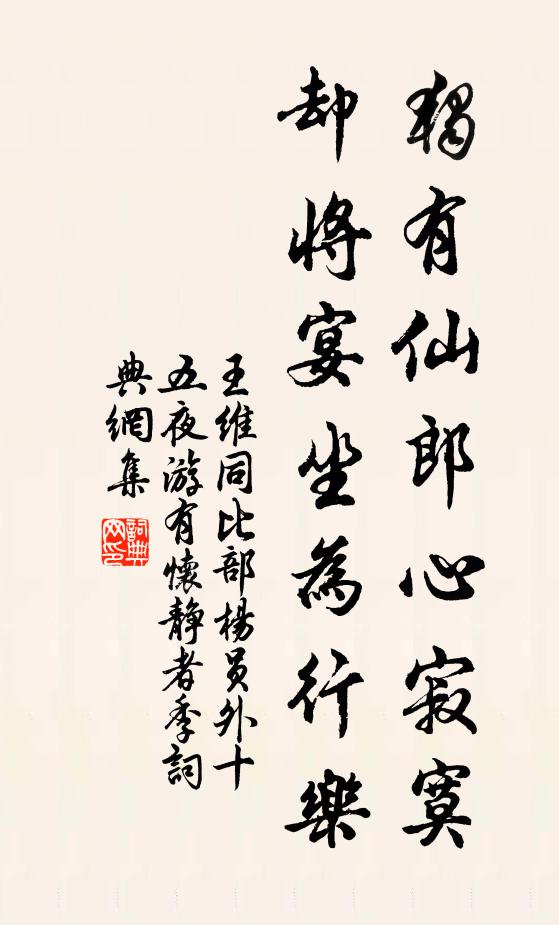 獨有仙郎心寂寞
却將宴坐為行樂
王維同比部楊員外十
五夜游有懷靜者季詞
典網集
詞典
网印